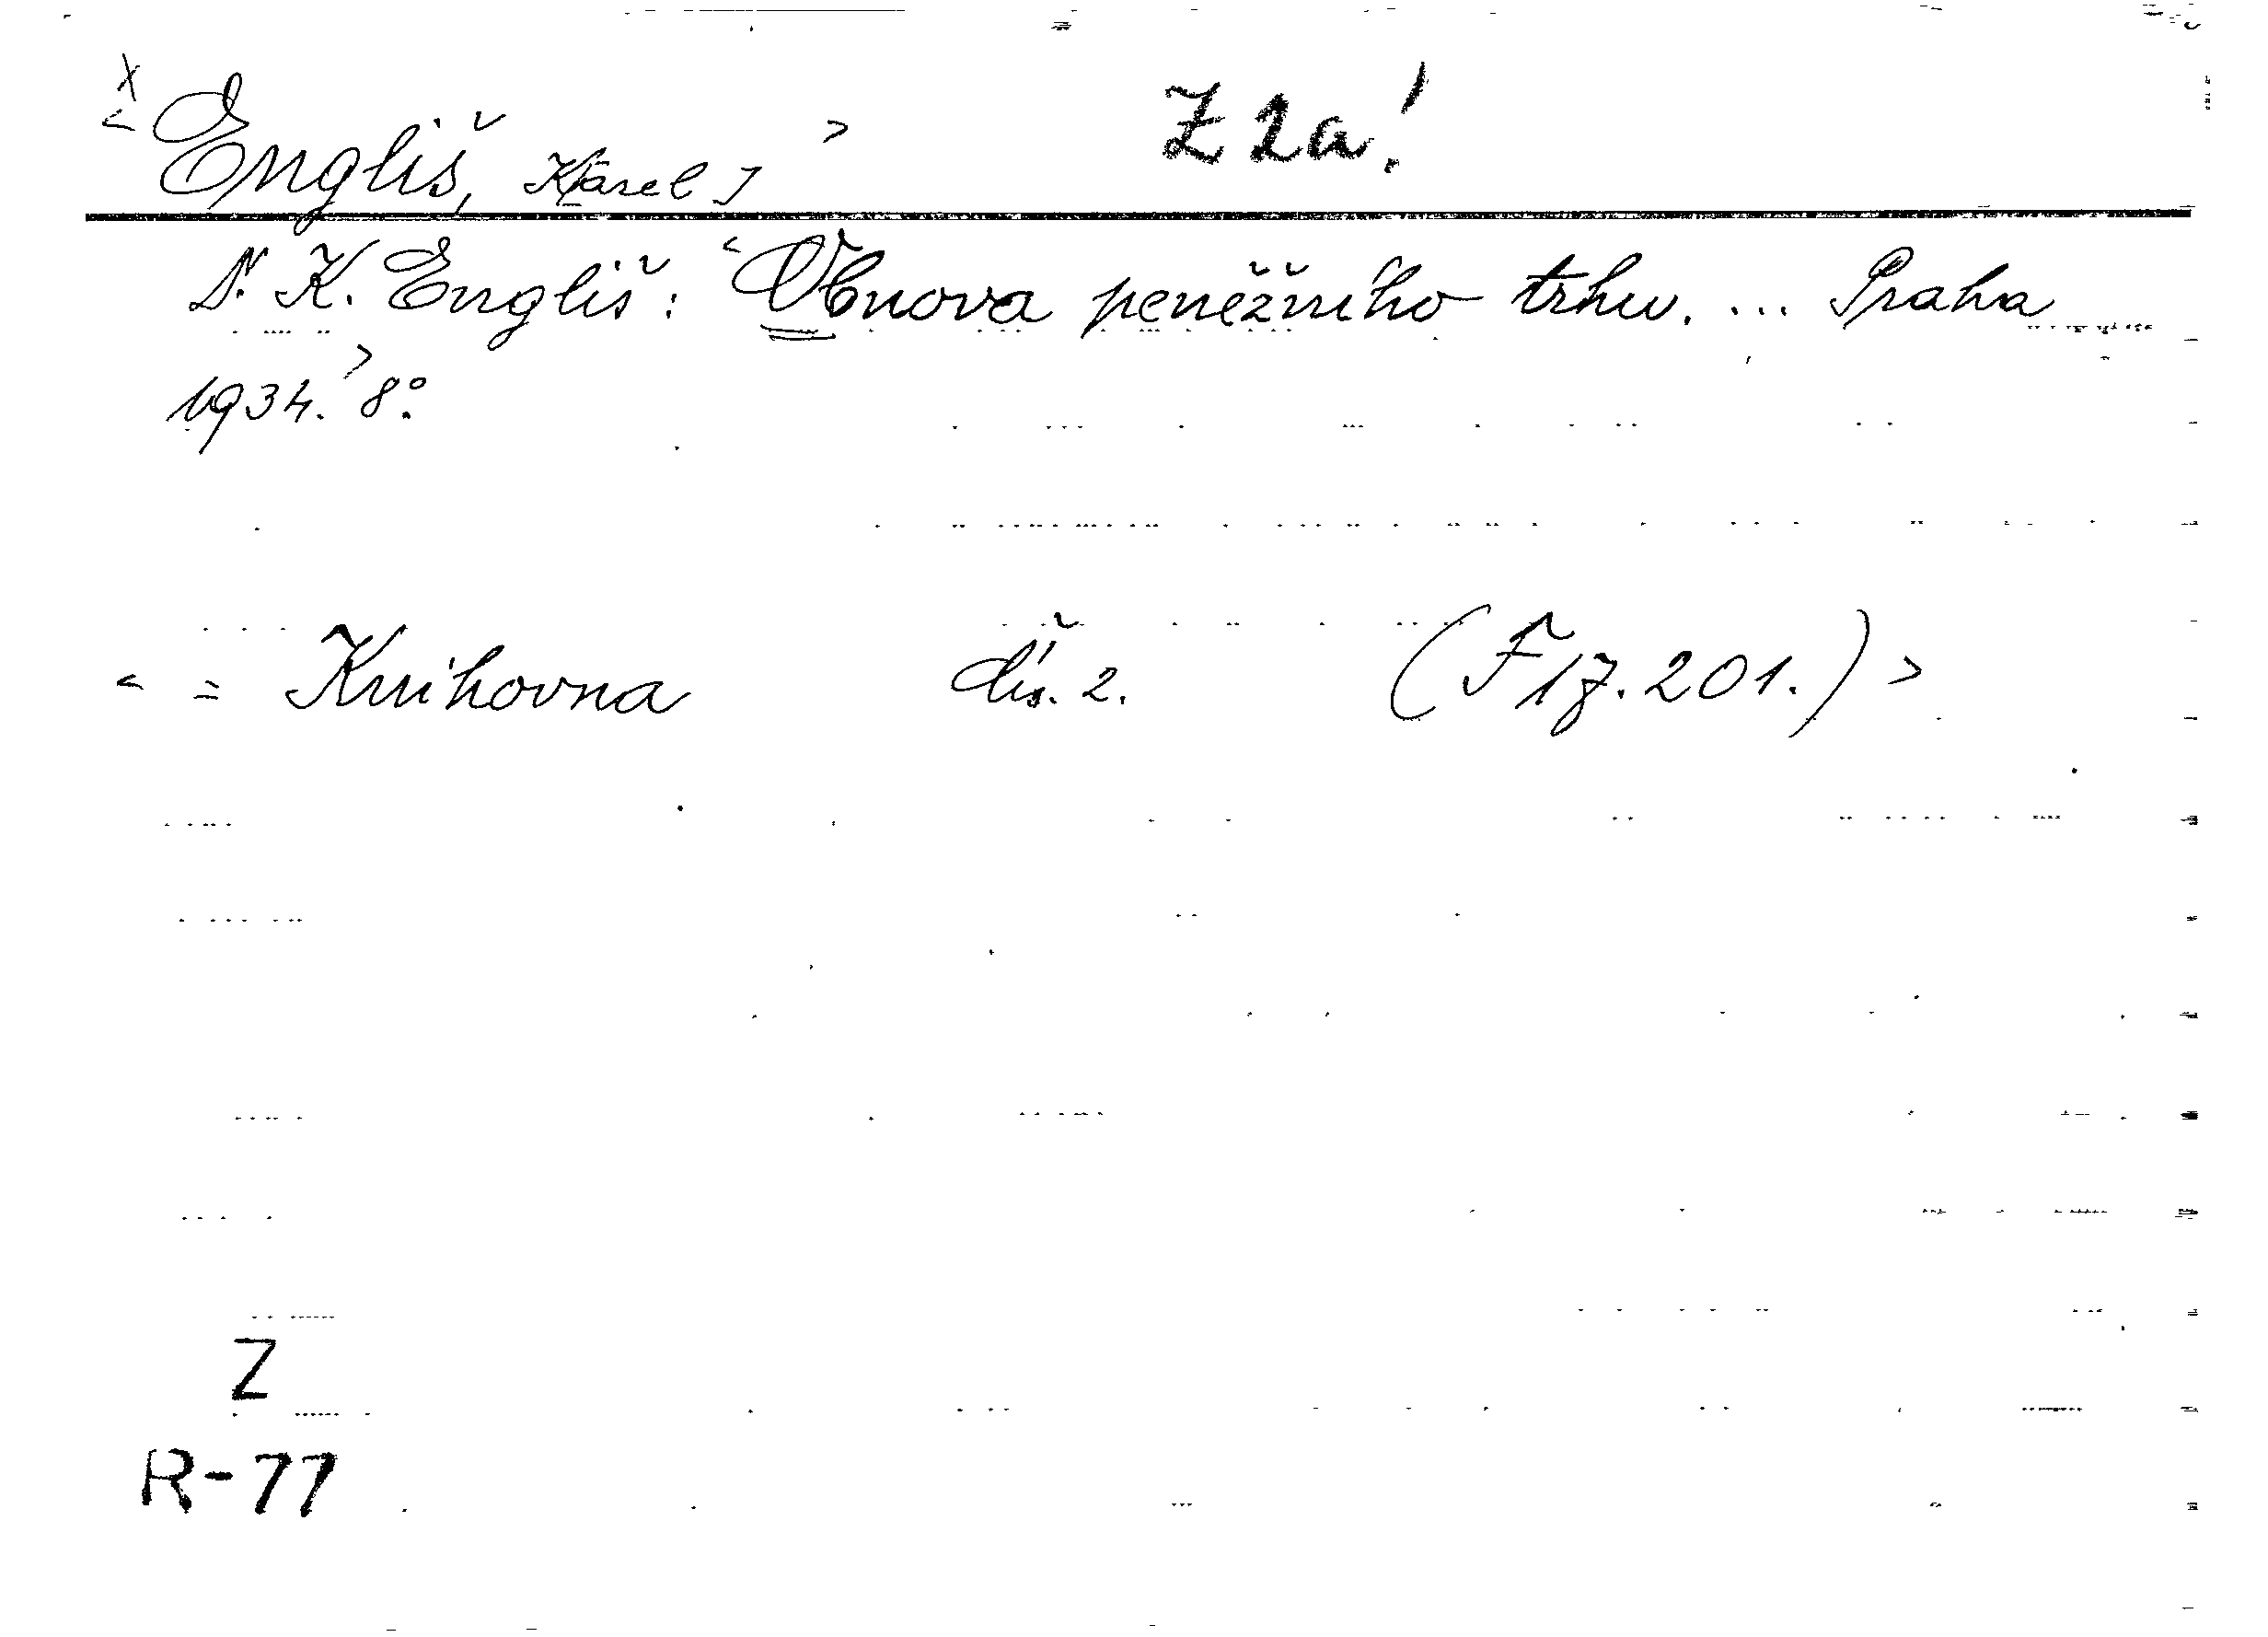 x
< Engliš, Karel ] > Z 2a!
Dr. K. Engliš: < Obnova peněžního trhu. ... Praha
1934. > 8°.
< = Knihovna čís. 2. (F 17.201.) >
Z
R-77